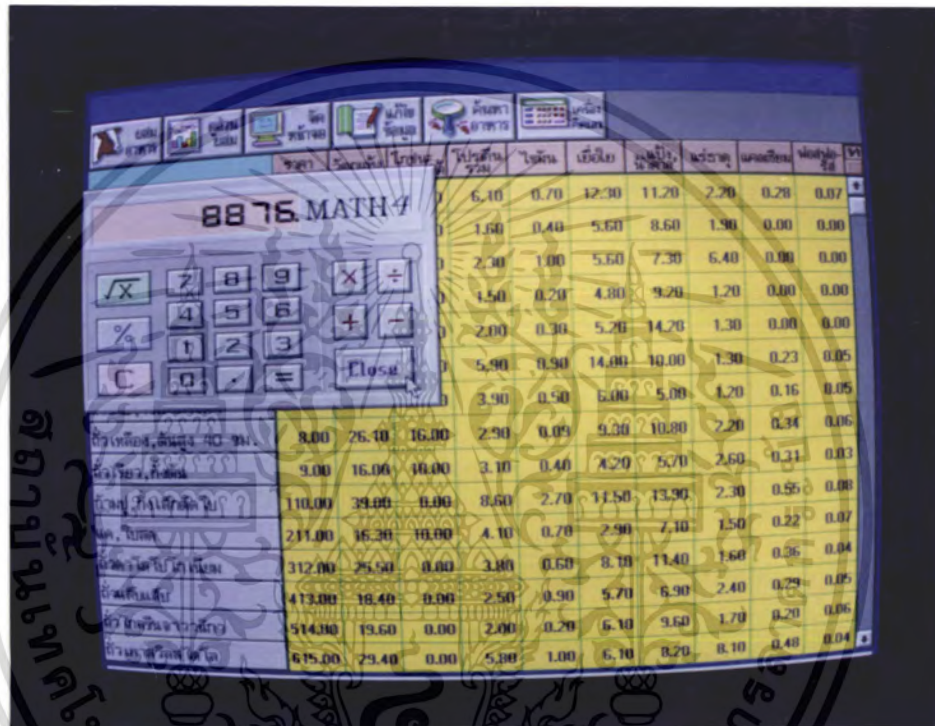 ผสม อาหาร ผสม จัด หน้าจอ แก้ไข ข้อมูล ค้นหา อาหาร เครื่อง
ราคา โปรตีน รวม ไขมัน เยื่อใย แร่ธาตุ แคลเซียม
8876. MATH4
√X 7 8 9 X ÷
% 4 5 6 + −
1 2 3
C 0 . = Close
6.10 0.70 12.30 11.20 2.20 0.28 0.07
1.60 0.40 5.60 8.60 1.90 0.00 0.00
2.30 1.00 5.60 7.30 6.40 0.00 0.00
1.50 0.20 4.80 9.20 1.20 0.00 0.00
2.00 0.30 5.20 14.20 1.30 0.00 0.00
5.90 0.90 14.00 10.00 1.30 0.23 0.05
3.90 0.50 6.00 5.00 1.20 0.16 0.05
ถั่วเหลือง,ต้นสูง 40 ซม. 8.00 26.10 16.00 2.90 0.09 9.30 10.80 2.20 0.34 0.06
9.00 16.00 10.00 3.10 0.40 4.20 5.70 2.60 0.31 0.03
110.00 39.00 0.00 8.60 2.70 11.50 13.90 2.30 0.55 0.08
แค,ใบสด 211.00 16.30 10.00 4.10 0.70 2.90 7.10 1.50 0.22 0.07
312.00 25.50 0.00 3.80 0.60 8.10 11.40 1.60 0.36 0.04
413.00 18.40 0.00 2.50 0.90 5.70 6.90 2.40 0.29 0.05
514.00 19.60 0.00 2.00 0.20 6.10 9.60 1.70 0.20 0.06
615.00 29.40 0.00 5.80 1.00 6.10 8.20 8.10 0.48 0.04